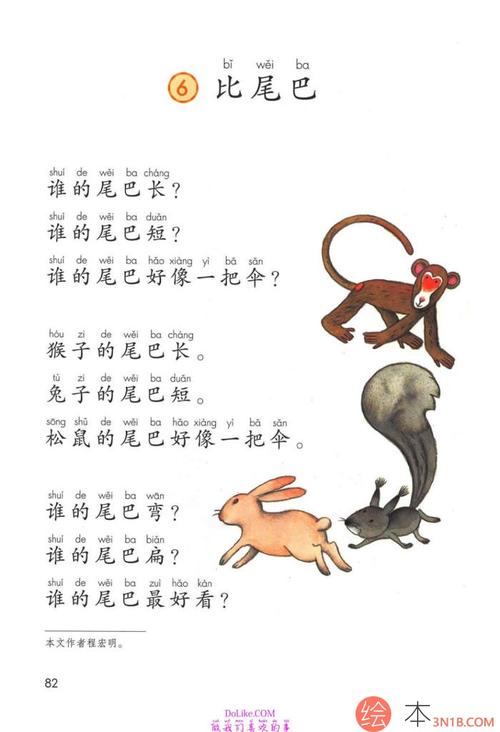 bǐ wěi ba
6 比尾巴
shuí de wěi ba cháng
谁的尾巴长？
shuí de wěi ba duǎn
谁的尾巴短？
shuí de wěi ba hǎo xiàng yì bǎ sǎn
谁的尾巴好像一把伞？
hóu zi de wěi ba cháng
猴子的尾巴长。
tù zi de wěi ba duǎn
兔子的尾巴短。
sōng shǔ de wěi ba hǎo xiàng yì bǎ sǎn
松鼠的尾巴好像一把伞。
shuí de wěi ba wān
谁的尾巴弯？
shuí de wěi ba biǎn
谁的尾巴扁？
shuí de wěi ba zuì hǎo kàn
谁的尾巴最好看？
本文作者程宏明。
82
DoLike.COM
做我们喜欢的事
绘本 3N1B.COM